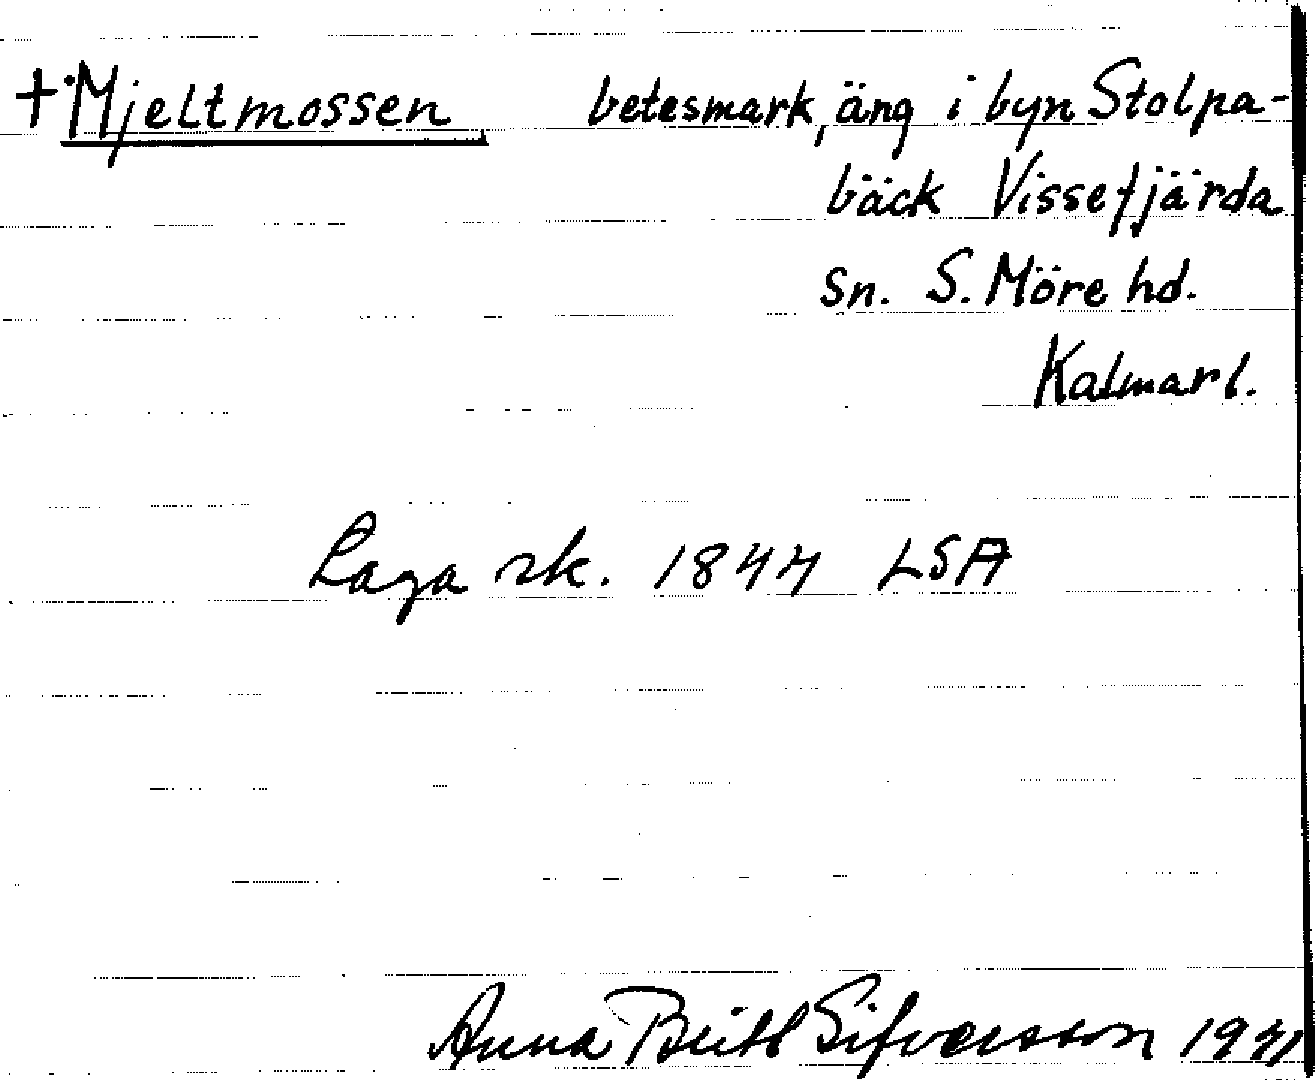 †Mjeltmossen betesmark, äng i byn Stolpa-
bäck Vissefjärda
Sn. S. Möre hd.
Kalmar l.
Laga sk. 1844 LSA
Anna Britt Sifversson